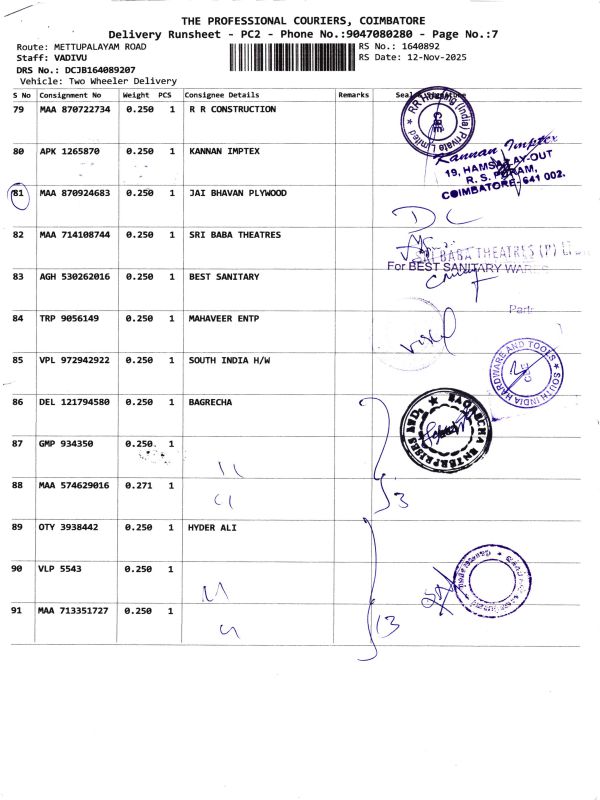 THE PROFESSIONAL COURIERS, COIMBATORE
Delivery Runsheet - PC2 - Phone No.:9047080280 - Page No.:7
Route: METTUPALAYAM ROAD
RS No.: 1640892
Staff: VADIVU
RS Date: 12-Nov-2025
DRS No.: DCJB164089207
Vehicle: Two Wheeler Delivery
S No Consignment No Weight PCS Consignee Details Remarks
79 MAA 870722734 0.250 1 R R CONSTRUCTION
RR Housing (India) Private Limited
CBE
80 APK 1265870 0.250 1 KANNAN IMPTEX
Kannan Imptex
19, HAMSA LAY-OUT
R. S. PURAM,
COIMBATORE- 641 002.
81 MAA 870924683 0.250 1 JAI BHAVAN PLYWOOD
DC
82 MAA 714108744 0.250 1 SRI BABA THEATRES
SRI BABA THEATRES (P) LTD
83 AGH 530262016 0.250 1 BEST SANITARY
For BEST SANITARY WARES
84 TRP 9056149 0.250 1 MAHAVEER ENTP
Partr
85 VPL 972942922 0.250 1 SOUTH INDIA H/W
SOUTH INDIA HARDWARE AND TOOLS
CBE
86 DEL 121794580 0.250 1 BAGRECHA
BAGRECHA ENTERPRISES
87 GMP 934350 0.250 1
88 MAA 574629016 0.271 1
3
89 OTY 3938442 0.250 1 HYDER ALI
90 VLP 5543 0.250 1
91 MAA 713351727 0.250 1
3